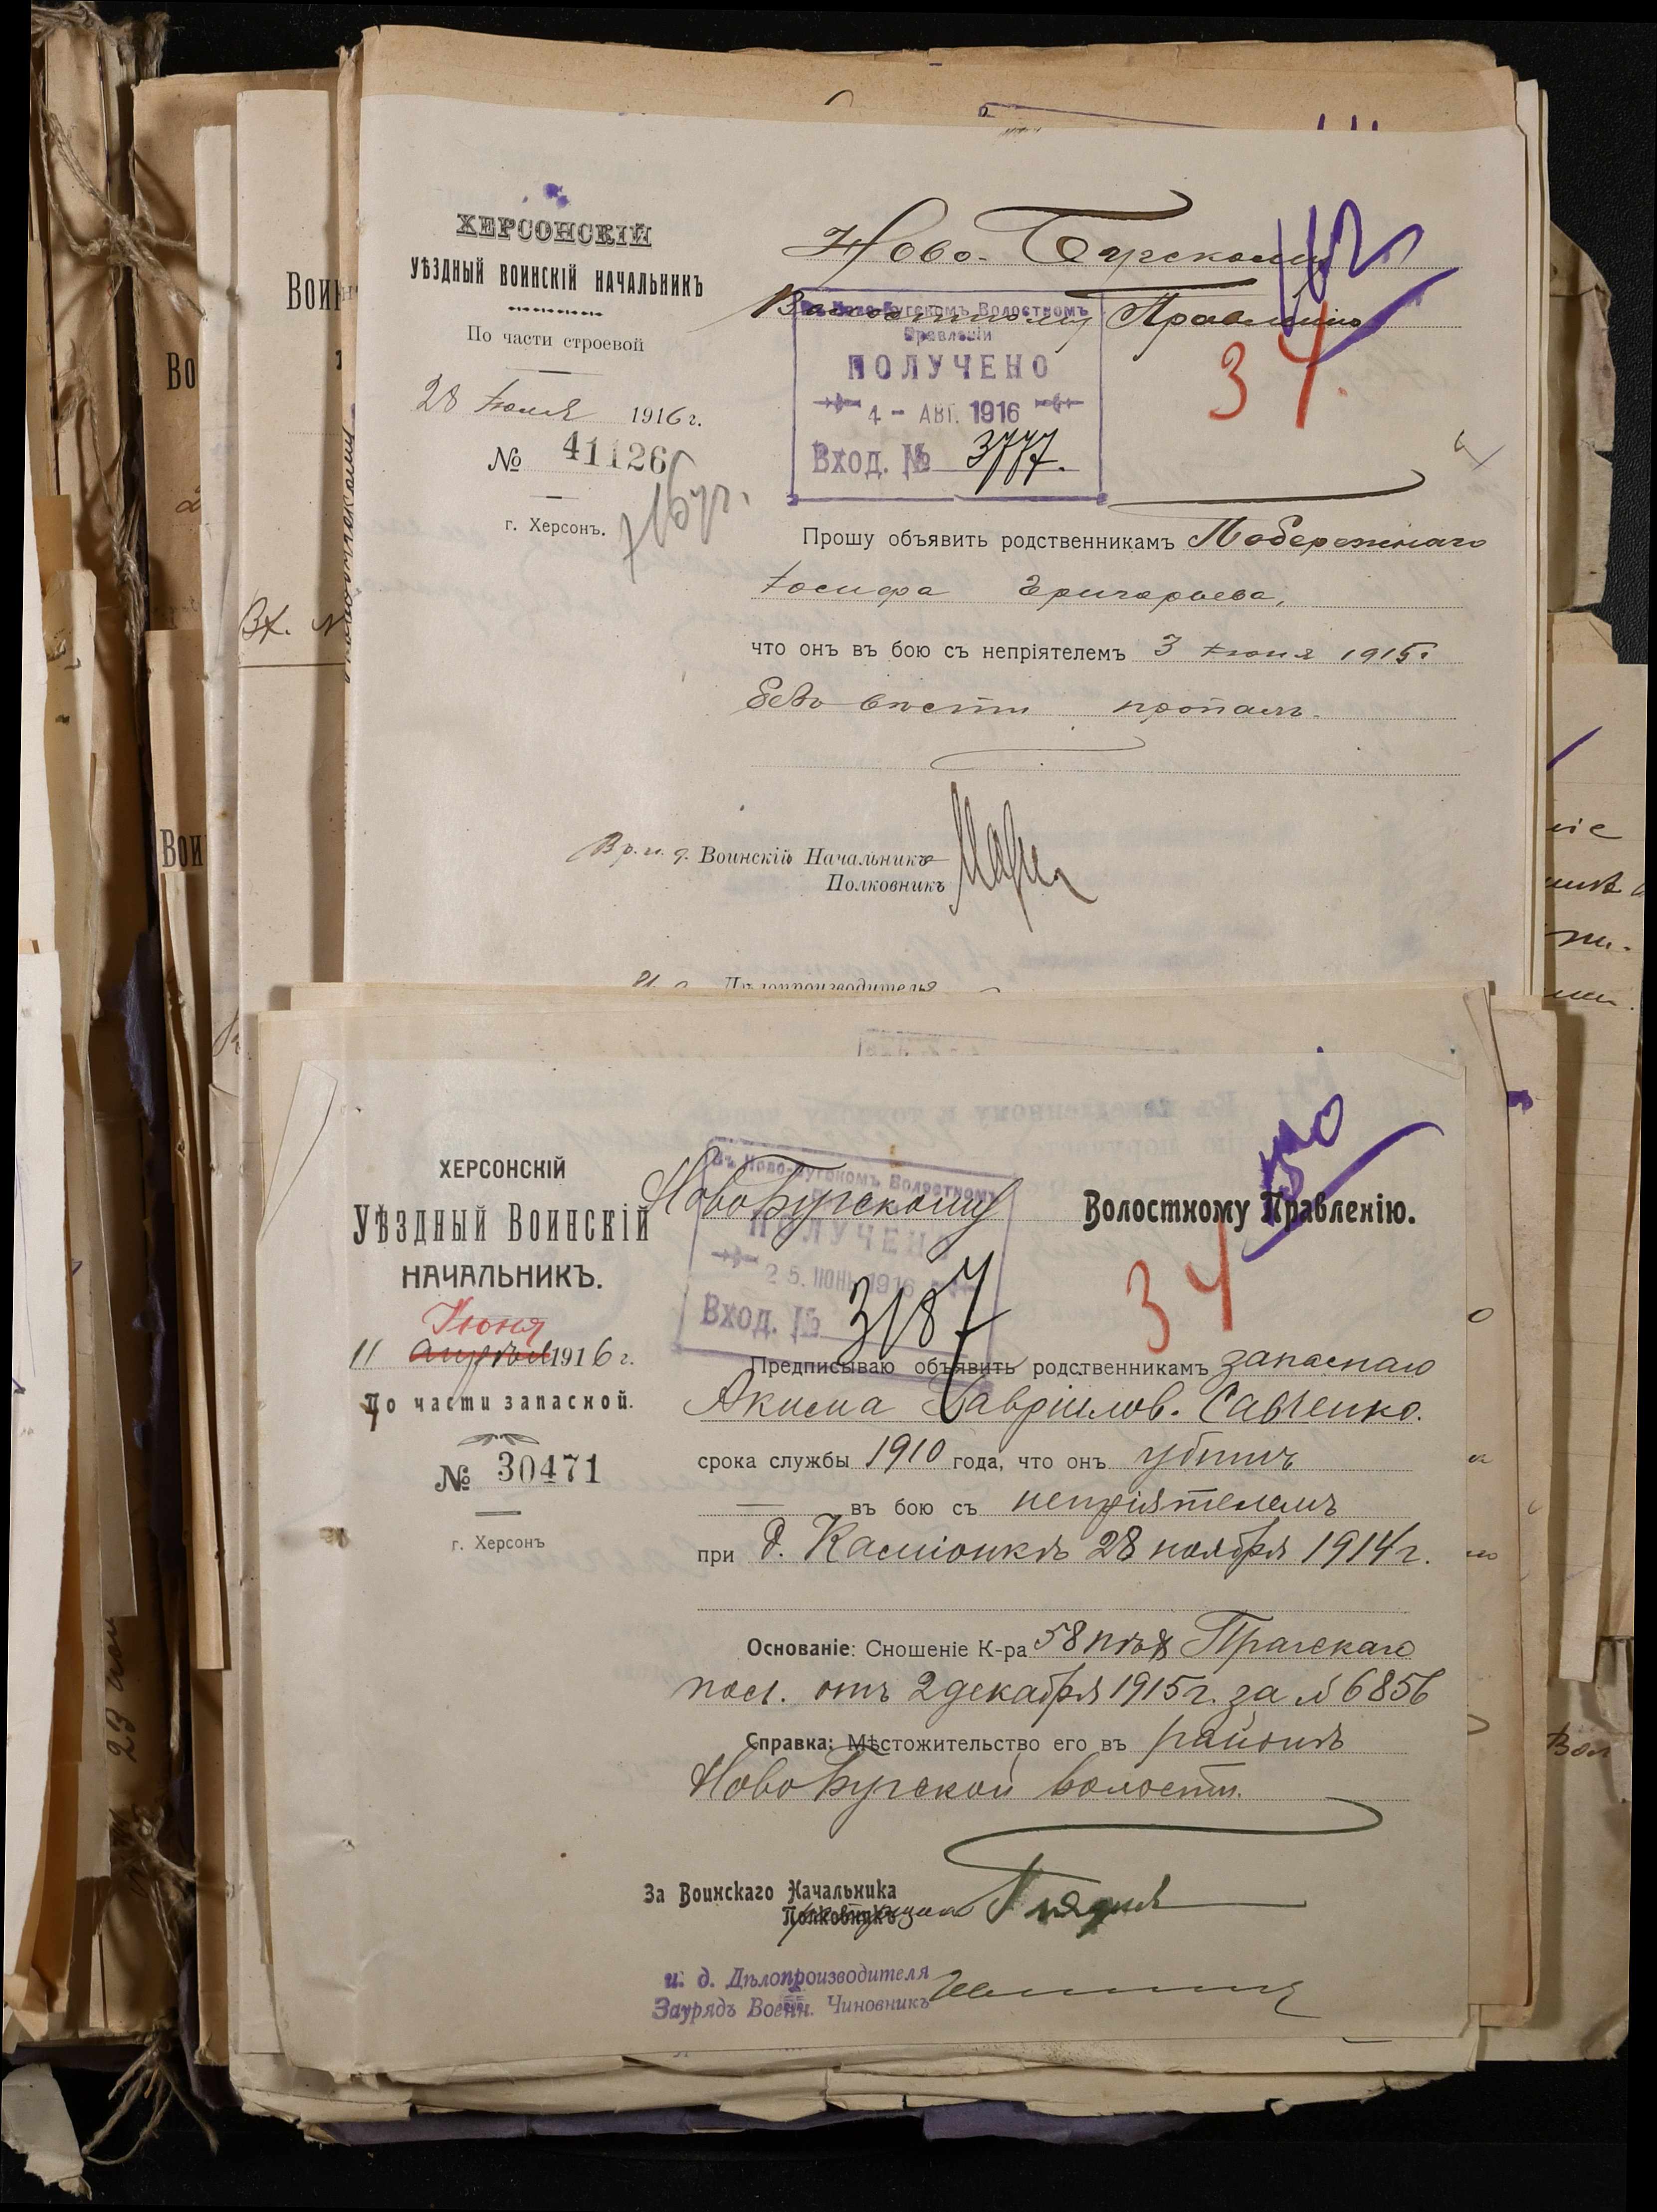 ХЕРСОНСКІЙ
УѢЗДНЫЙ ВОИНСКІЙ НАЧАЛЬНИКЪ
По части строевой
28 Іюля 1916 г.
№ 41126
г. Херсонъ.
Ново-Бугскому
Волостному Правленію
34.
Въ Ново-Бугскомъ Волостномъ
Правленіи
ПОЛУЧЕНО
4 - АВГ. 1916
Вход. № 3777.
Прошу объявить родственникамъ Побережнаго
Іосифа Григорьева,
что онъ въ бою съ непріятелемъ 3 Іюня 1915 г
безъ вѣсти пропалъ.
Вр. и. д. Воинскій Начальникъ
Полковникъ
И. д. Дѣлопроизводителя
ХЕРСОНСКІЙ
УѢЗДНЫЙ ВОИНСКІЙ
НАЧАЛЬНИКЪ.
Іюня
11 апрѣля 1916 г.
По части запасной.
№ 30471
г. Херсонъ
НовоБугскому Волостному Правленію.
34
Въ Ново-Бугскомъ Волостномъ
ПОЛУЧЕНО
25. ІЮН. 1916
Вход. № 3187
Предписываю объявить родственникамъ запаснаго
Акима Гавріилов. Савченко.
срока службы 1910 года, что онъ убитъ
въ бою съ непріятелемъ
при д. Касіонкѣ 28 ноября 1914 г.
Основаніе: Сношеніе К-ра 58 пѣх Прагскаго
пол. отъ 2 декабря 1915 г. за № 6856
Справка: Мѣстожительство его въ районѣ
НовоБугской волости.
За Воинскаго Начальника
Полковникъ
и. д. Дѣлопроизводителя
Заурядъ Военн. Чиновникъ
Вх. №
23